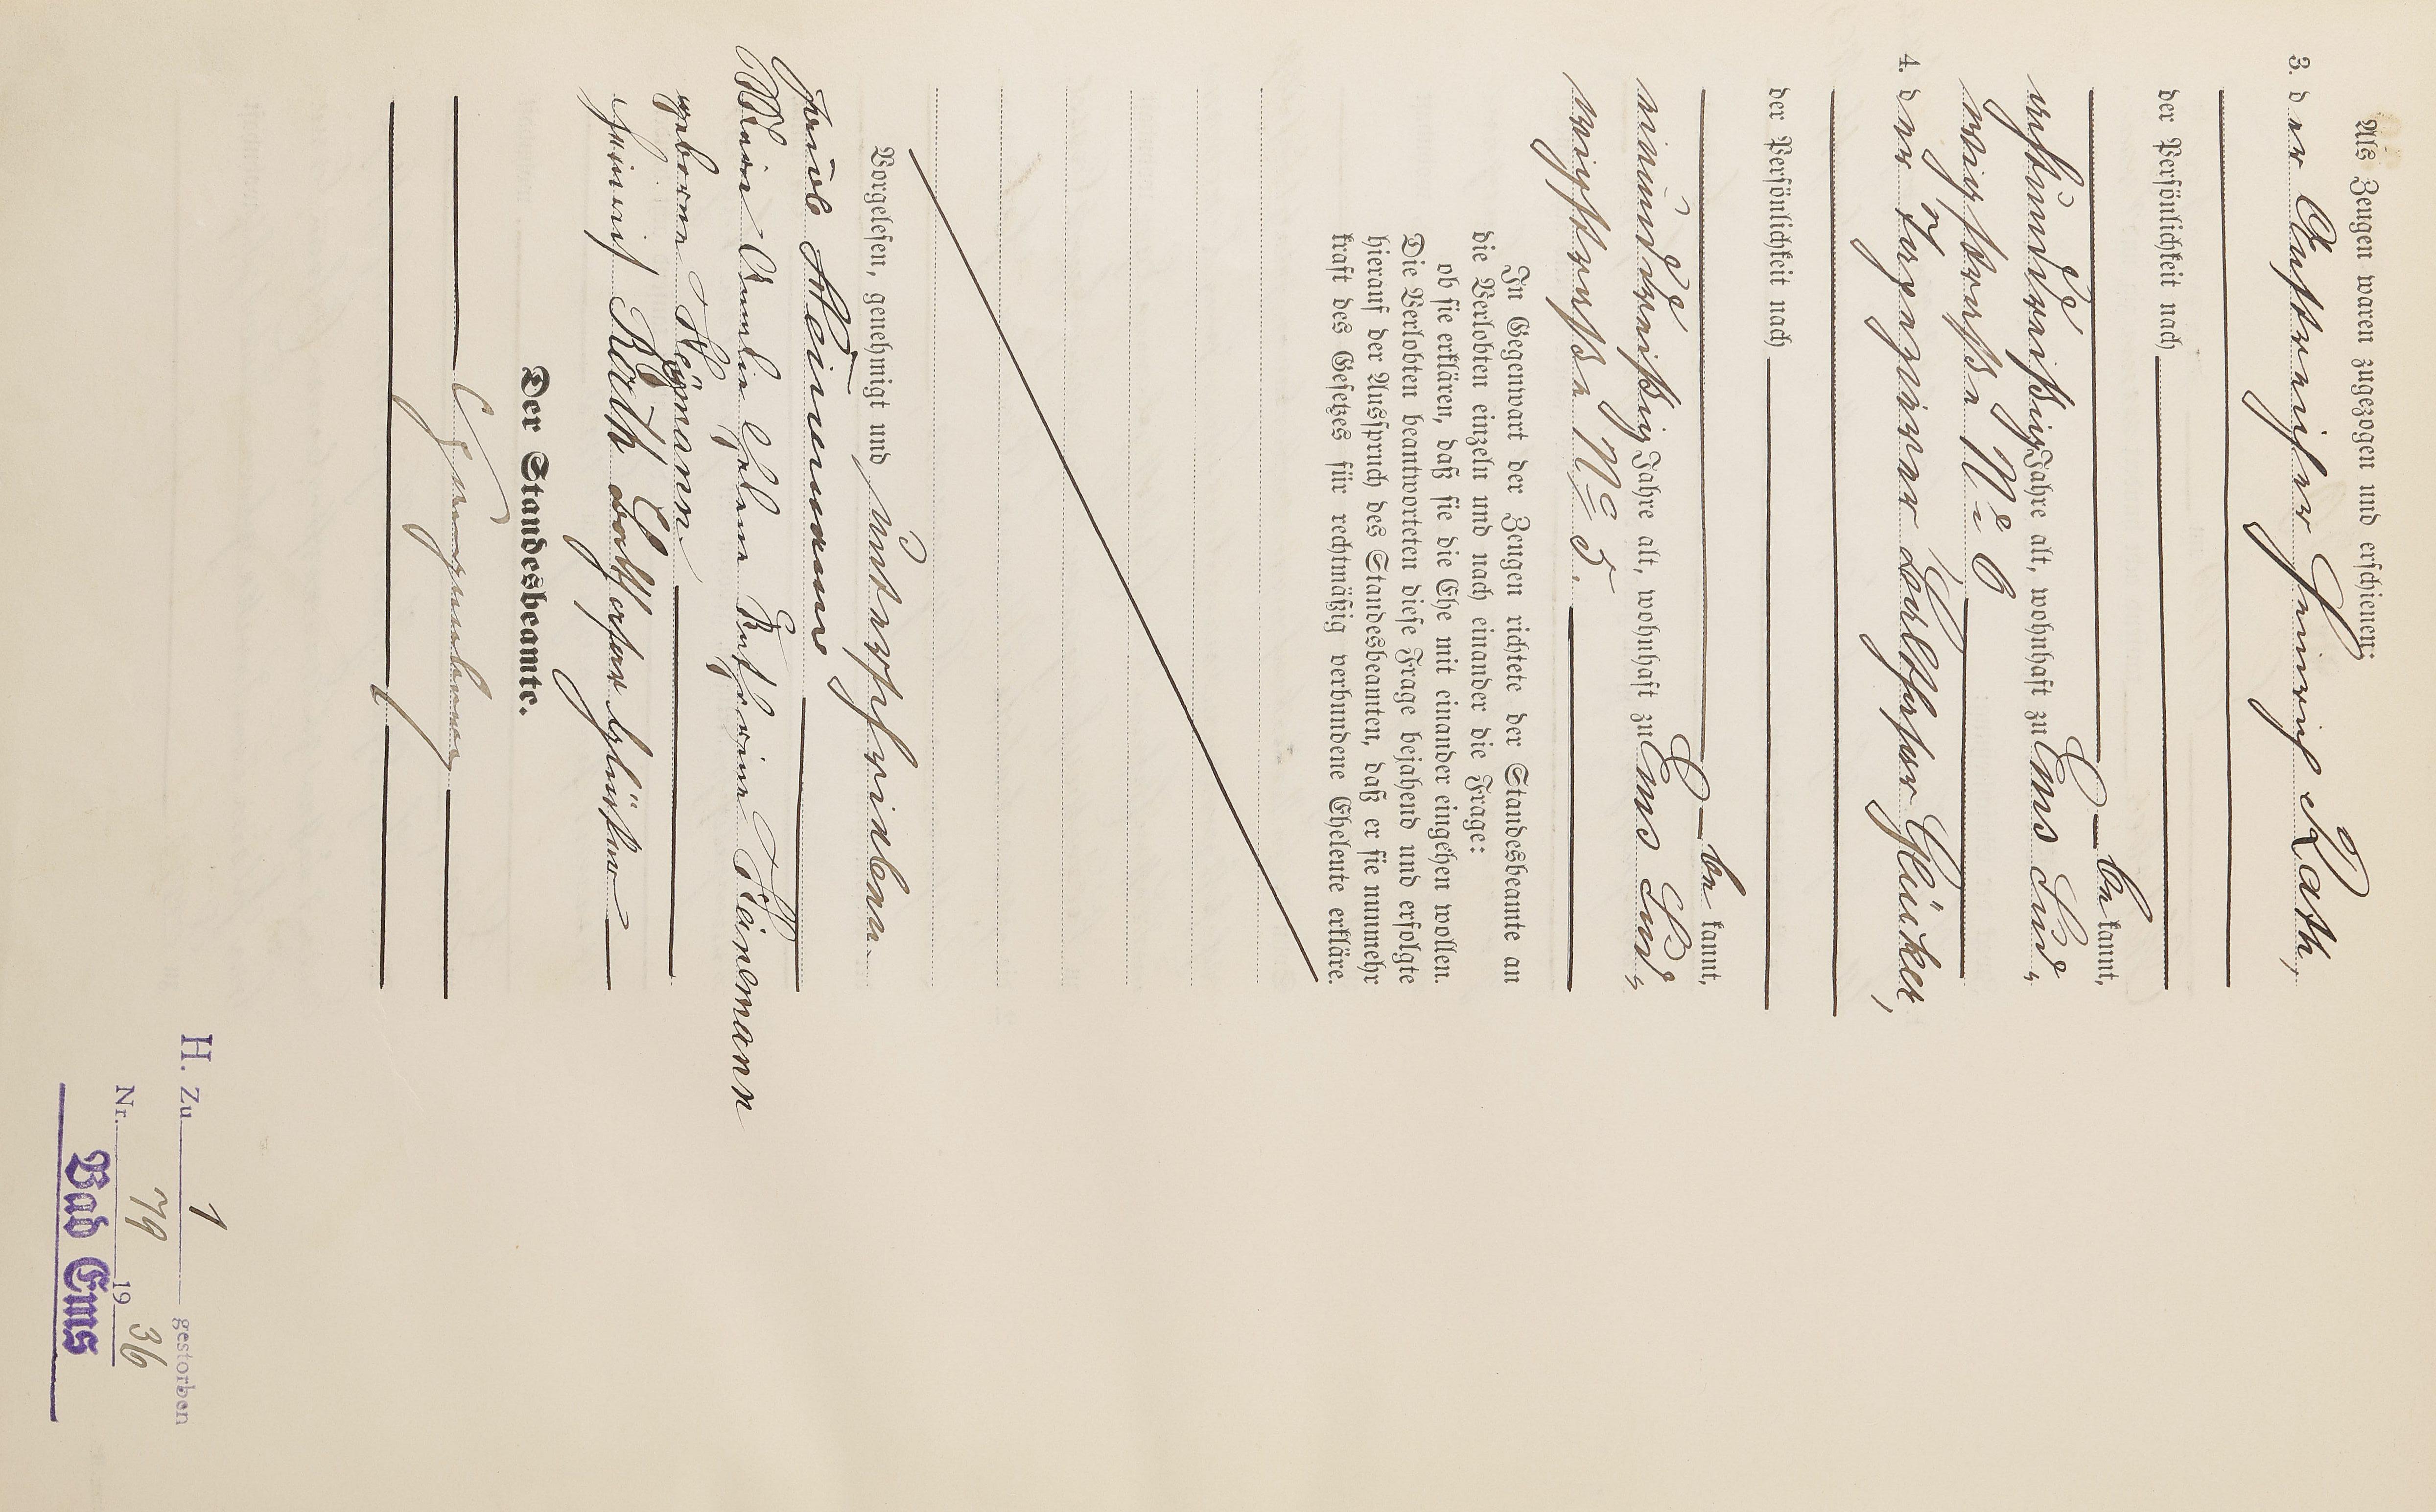 Als Zeugen waren zugezogen und erschienen:
3. der Anstreicher Heinrich Rath,
der Persönlichkeit nach
bekannt,
achtunddreißig Jahre alt, wohnhaft zu Ems Lind-
wigstraße No 6
4. der Tapezierer Balthasar Glücker,
der Persönlichkeit nach
bekannt,
einunddreißig Jahre alt, wohnhaft zu Ems
straße No 5.
In Gegenwart der Zeugen richtete der Standesbeamte an
die Verlobten einzeln und nach einander die Frage:
ob sie erklären, daß sie die Ehe mit einander eingehen wollen.
Die Verlobten beantworteten diese Frage bejahend und erfolgte
hierauf der Ausspruch des Standesbeamten, daß er sie nunmehr
kraft des Gesetzes für rechtmäßig verbundene Eheleute erkläre.
Vorgelesen, genehmigt und unterschrieben
Heinemann
Helene Katharine Heinemann
geborne
Heinrich Rath Balthasar
Der Standesbeamte.
H. Zu 1 gestorben
Nr. 79 1936
Bad Ems